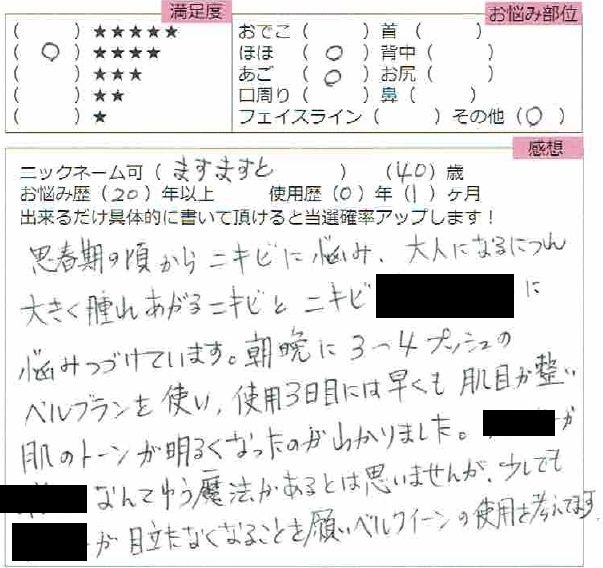 満足度
お悩み部位
(　　) ★★★★★
( ○ ) ★★★★
(　　) ★★★
(　　) ★★
(　　) ★
おでこ (　　) 首 (　　)
ほほ ( ○ ) 背中 (　　)
あご ( ○ ) お尻 (　　)
口周り (　　) 鼻 (　　)
フェイスライン (　　) その他 ( ○ )
感想
ニックネーム可 ( ますますと ) (40) 歳
お悩み歴 (20) 年以上　使用歴 (0) 年 (1) ヶ月
出来るだけ具体的に書いて頂けると当選確率アップします！
思春期の頃からニキビに悩み、大人になるにつれ
大きく腫れあがるニキビとニキビ に
悩みつづけています。朝晩に3〜4プッシュの
ベルブランを使い、使用3日目には早くも肌目が整い
肌のトーンが明るくなったのがわかりました。 が
なんてゆう魔法があるとは思いませんが、少しでも
が目立たなくなることを願いベルクイーンの使用を考えてます。